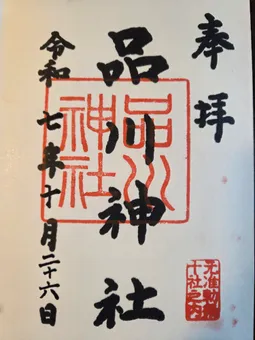 奉拝
品川神社
品川神社
令和七年十月二十六日